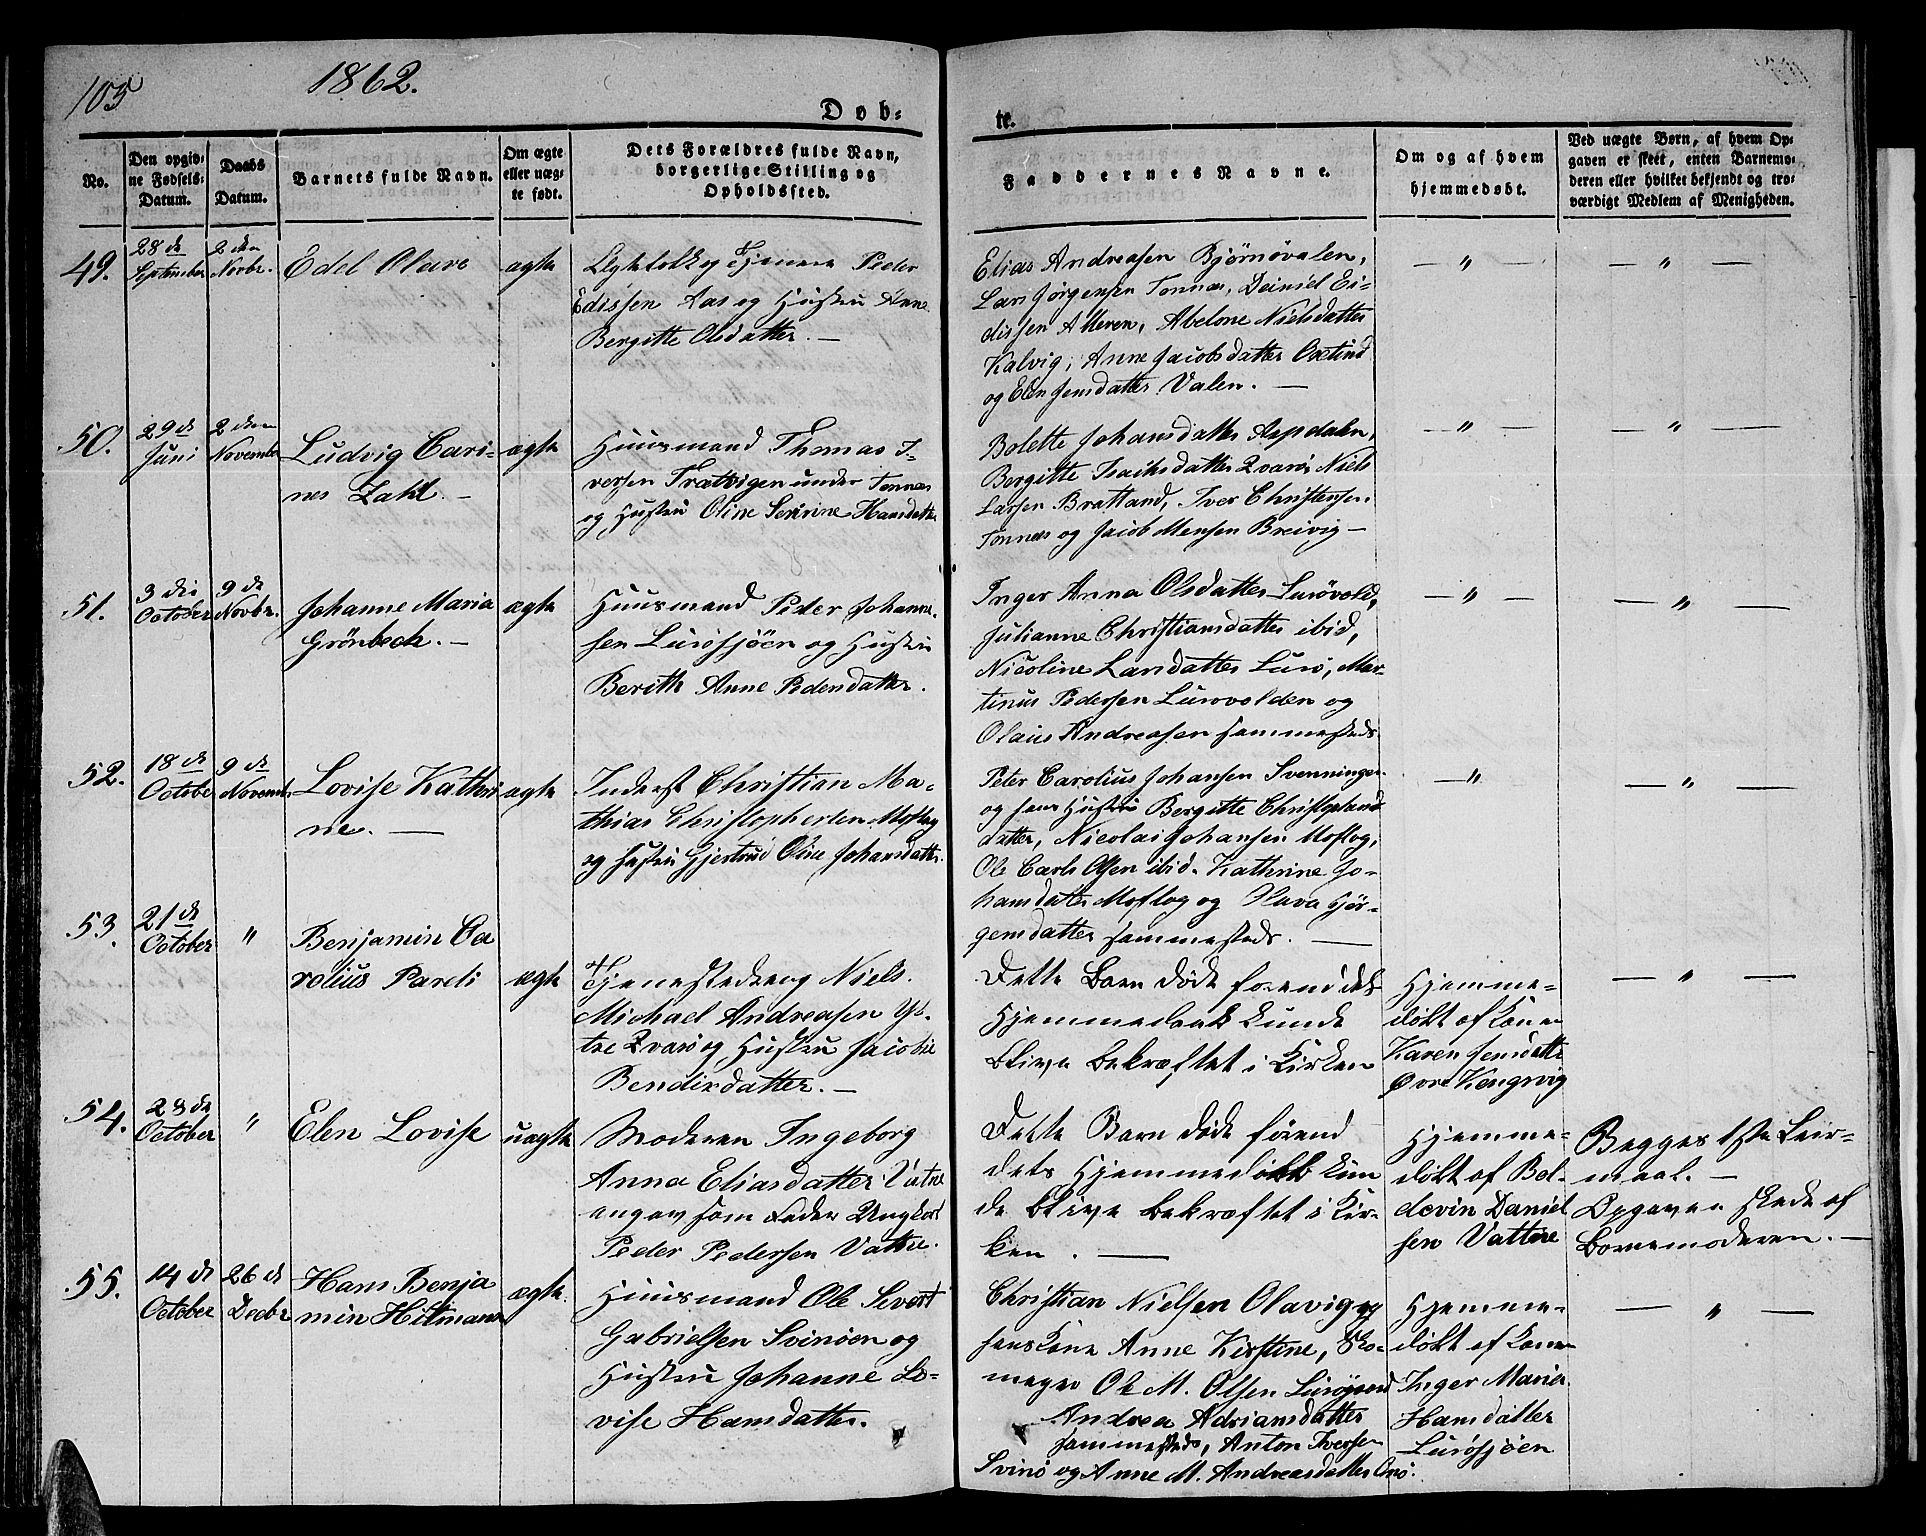 105
1862.
Døb-
te.
No.
Den opgiv-
ne Fødsels-
Datum.
Daabs
Datum.
Barnets fulde Navn.
Om ægte
eller uæg-
te født.
Dets Forældres fulde Navn,
borgerlige Stilling og
Opholdssted.
Faddernes Navne.
Om og af hvem
hjemmedøbt.
Ved uægte Børn, af hvem Op-
gaven er skeet, enten Barnemo-
deren eller hvilket bekjendt og tro-
værdigt Medlem af Menigheden.
49.
28de
September
2den
Novbr.
Edel Olava
ægte
Ægtefolk og Tjenere Peder
Edissen Aas og Hustru Anne
Bergitte Olsdatter. —
Elias Andreasen Bjørnøvalen,
Lars Jørgensen Tonnes, Deiniel Ei-
dissen Alteren, Abelone Nielsdatter
Kalvig, Anne Jacobsdatter Oxetind
og Elen Jensdatter Valen. —
— " —
— " —
50.
29de
Juni
2den
November
Ludvig Cari-
nes Zahl. —
ægte
Huusmand Thomas I-
versen Trætvigen under Tonnes
og Hustru Oline Serine Hansdatter
Bolette Johansdatter Aspdalen,
Bergitte Isachsdatter Qvarø, Niels
Larsen Bratland, Iver Christensen
Tonnes og Jacob Mensen Breivig —
— " —
— " —
51.
3die
October
9de
Novbr.
Johanne Maria
Grönbech. —
ægte
Huusmand Peder Johanne-
sen Lurøsjøen og Hustru
Berith Anne Pedersdatter.
Inger Anna Olsdatter Lurøvold,
Julianne Christiansdatter ibid,
Nicoline Larsdatter Lurø, Mar-
tinus Pedersen Lurøvolden og
Olaus Andreasen sammesteds
— " —
— " —
52.
18de
October
9de
Novemb.
Lovise Kathri
ne. —
ægte
Inderst Christian Ma-
thias Christophersen Moflag
og Hustru Gjertrud Oline Johansdatter.
Peter Carolius Johansen Svenningen
og hans Hustru Bergitte Christophers
datter, Nicolai Johansen Moflog,
Ole Carls Olsen ibid. Kathrine Jo-
hansdatter Moflog og Hava Jør-
gensdatter sammesteds. —
— " —
— " —
53.
21de
October
"
Benjamin Ca
rolius Pareli
ægte
Tjenestedreng Niels
Michael Andreasen Yt-
tre Qvarø og Hustru Jacobie
Bendixdatter. —
Dette Barn døde forend dets
Hjemmedaab kunde
blive bekræftet i Kirken
Hjemme-
døbt af Konen
Karen Jensdatter
Øvre Kongsvig
— " —
54.
28de
October
"
Elen Lovise
uægte
Moderen Ingeborg
Anna Eliasdatter Vatne
angav som Fader Ungkarl
Peder Pedersen Vatne.
Dette Barn døde førend
dets Hjemmedaab kun
de blive bekræftet i Kir-
ken. —
Hjemme-
døbt af Bal-
devin Daniel
sen Vattne
Begges 1ste Leir-
maal. —
Opgaven skede af
Barnemoderen. —
55.
14de
October
26de
Decbr
Hans Benja
min Hitmann
ægte.
Huusmand Ole Sivert
Gabrielsen Svinøen og
Hustru Johanne Lo-
vise Hansdatter.
Christian Nielsen Olavig og
hans Kone Anne Kirstine, Sko-
mager Ole M. Olsen Lurøgaard
Andrea Adriansdatter
sammesteds, Anton Iversen
Svinø og Anne M. Andreasdatter Onø.
Hjemme-
døbt af Konen
Inger Marie
Hansdatter
Lurøsjøen
— " —